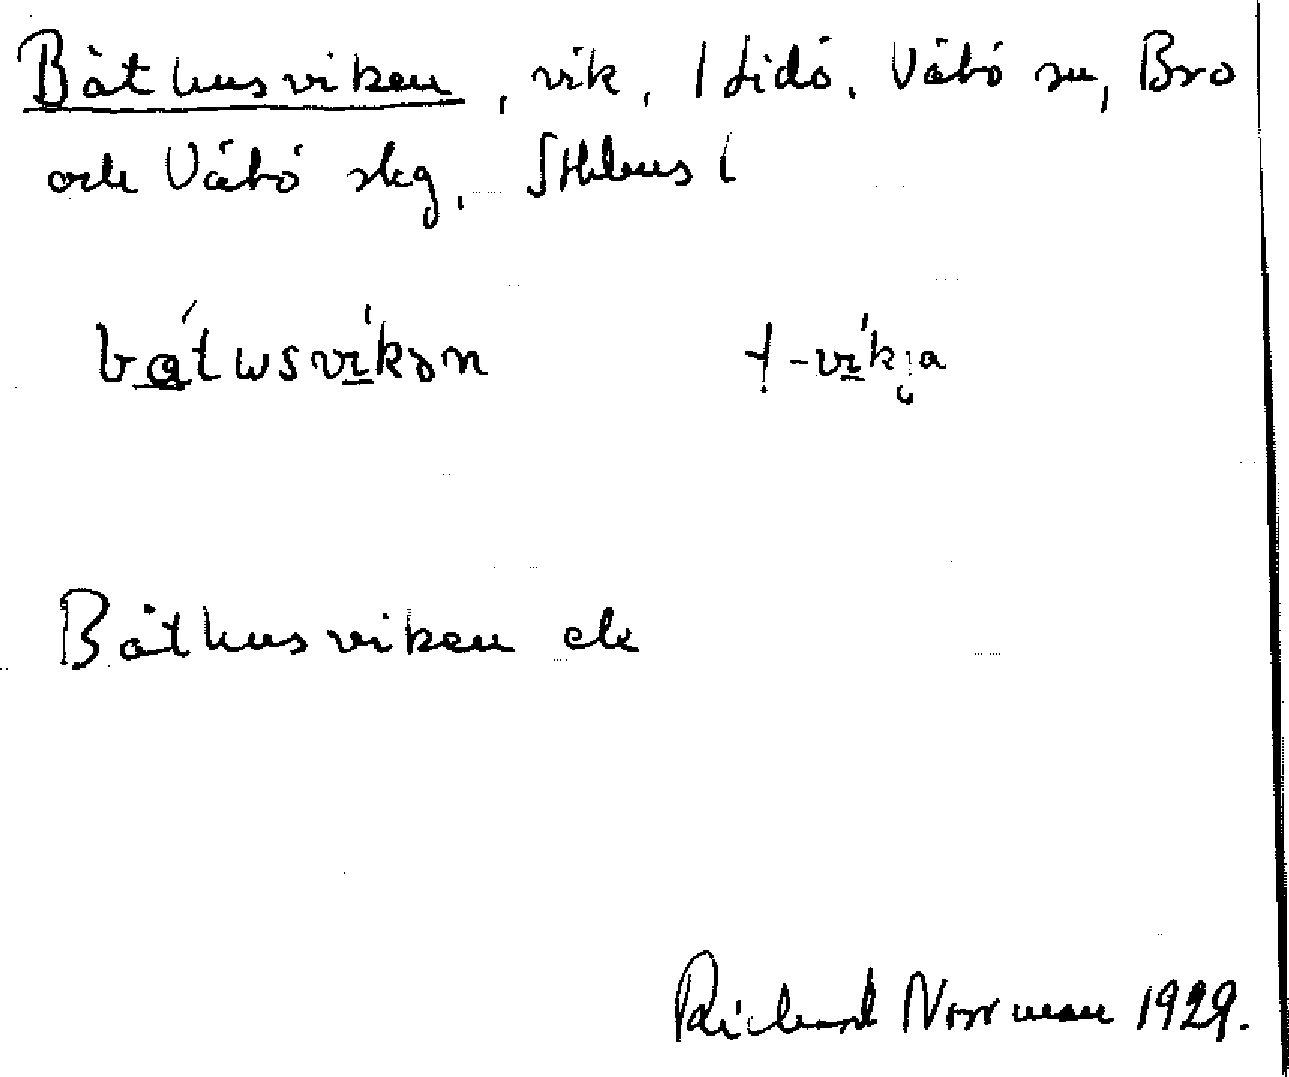 Båthusviken, vik, I Lidö, Vätö sn, Bro
och Vätö skg, Sthlms l
bátusvíkən †-víkja
Båthusviken ek
Richard Norrman 1929.